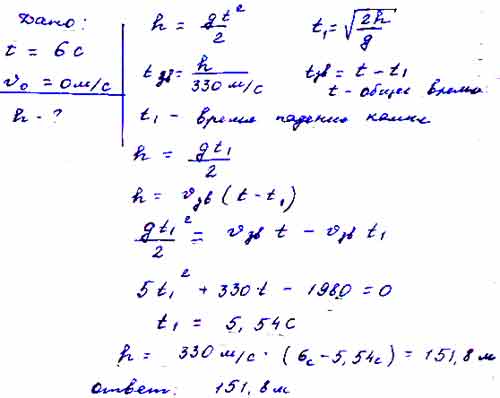 Дано:
t = 6 с
v₀ = 0 м/с
h - ?
h = gt²/2    t₁ = √(2h/g)
tзв = h/330 м/с    tзв = t - t₁
t - общее время
t₁ - время падения камня
h = gt₁/2
h = vзв (t - t₁)
gt₁²/2 = vзв t - vзв t₁
5t₁² + 330t - 1980 = 0
t₁ = 5,54 с
h = 330 м/с · (6с - 5,54с) = 151,8 м
ответ: 151,8 м